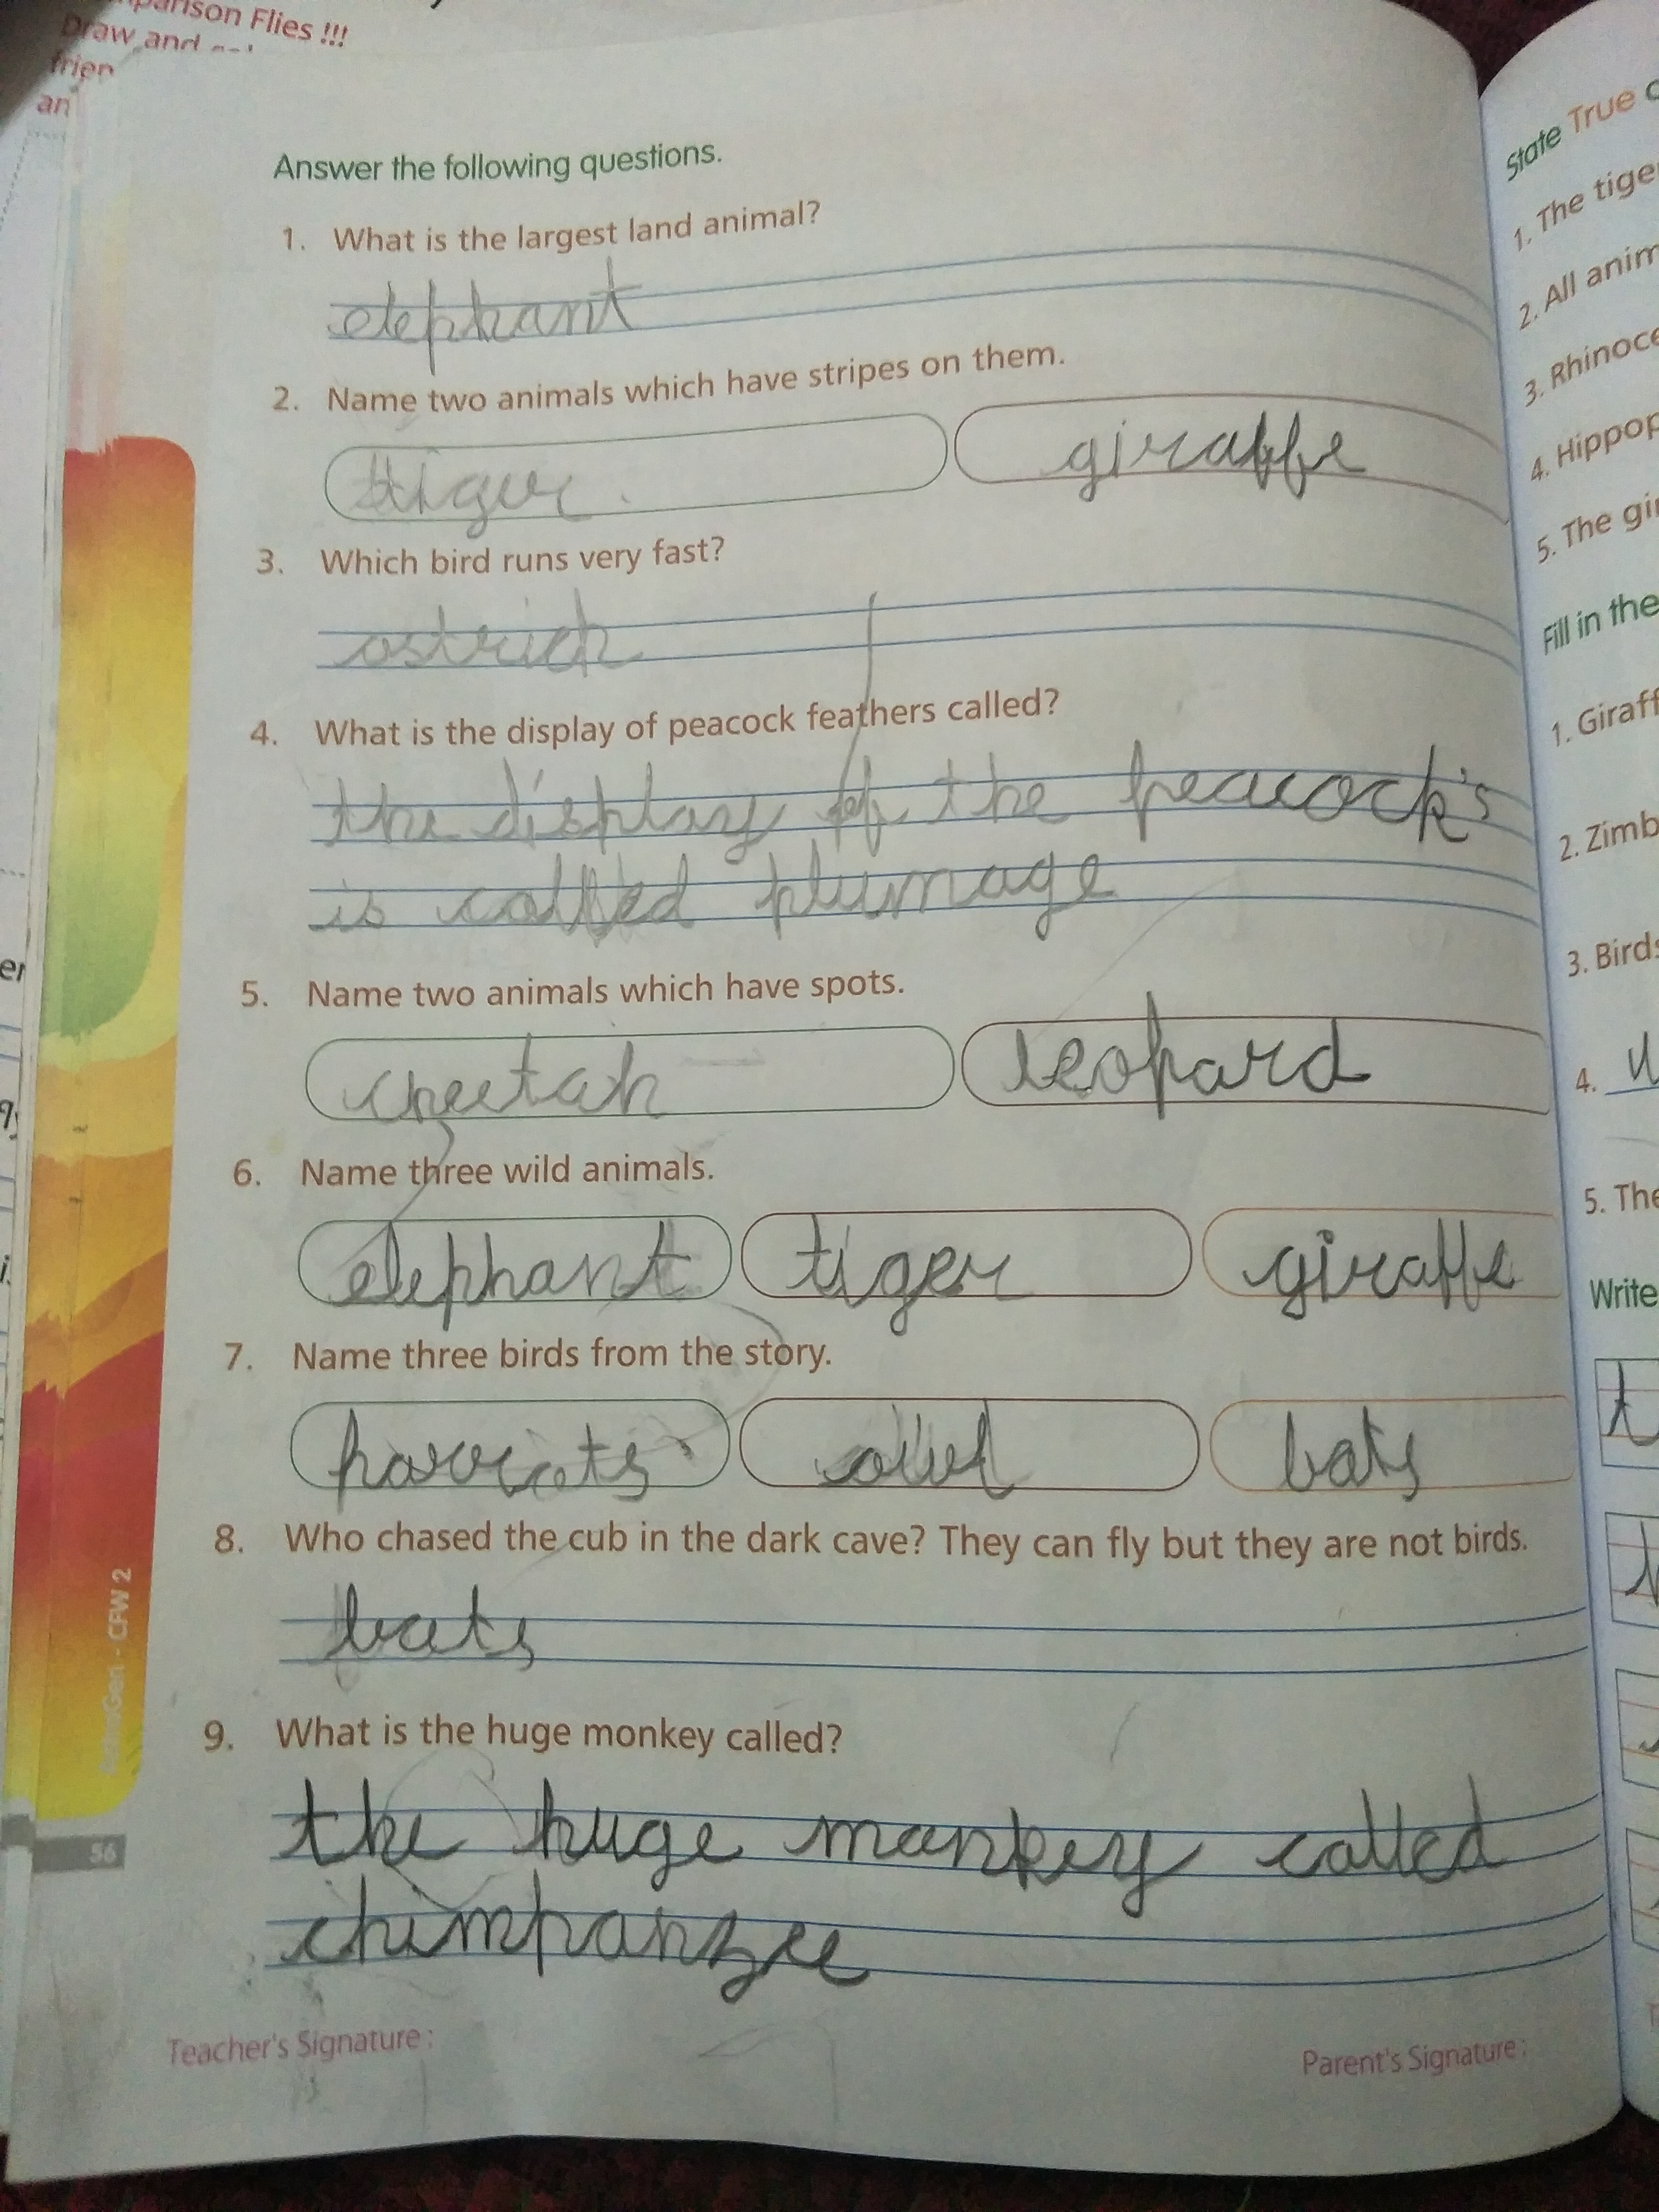 parison Flies !!!
Draw and
frien
an
Answer the following questions.
1. What is the largest land animal?
elephant
2. Name two animals which have stripes on them.
tiger. giraffe
3. Which bird runs very fast?
ostrich
4. What is the display of peacock feathers called?
the display of the peacock's
is called plumage
5. Name two animals which have spots.
cheetah leopard
6. Name three wild animals.
elephant tiger giraffe
7. Name three birds from the story.
bats
8. Who chased the cub in the dark cave? They can fly but they are not birds.
bats
9. What is the huge monkey called?
the huge monkey called
chimpanzee
Teacher's Signature :
Parent's Signature :
56
CFW 2
State True o
1. The tiger
2. All anim
3. Rhinoce
4. Hippop
5. The gir
Fill in the
1. Giraff
2. Zimb
3. Birds
4.
5. The
Write
t